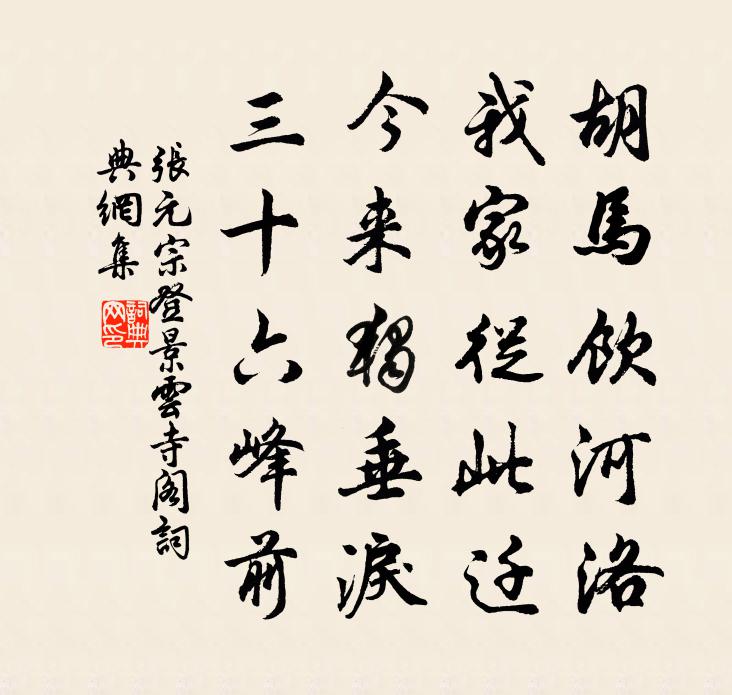 胡馬飲河洛
我家從此迁
今来獨垂淚
三十六峰前
張元宗登景雲寺阁詞
典網集
詞典
网印